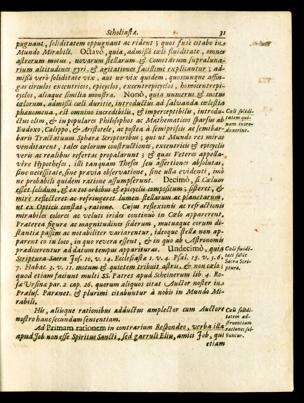 Scholiastæ. 31
pugnant, soliditatem oppugnant ac rident; quos fusè citabo in
Mundo Mirabili. Octavò, quia, admissâ cœli fluiditate, omnes
astrorum motus, novarum stellarum & Cometarum supraluna-
rium altitudines gyri, & agitationes facillimè explicantur; ad-
missâ verò soliditate vix, aut ne vix quidem, quotcunque assin-
gas circulos excentricos, epicyclos, excentrepicyclos, homocentrepi-
cyclos, aliaque similia monstra. Nonò, quia numerus & motus
cœlorum, admissâ cœli duritie, introductus ad salvanda cœlestia
phænomena, est omnino incredibilis, & imperceptibilis, introdu-
ctus olim, & in populares Philosophos ac Mathematicos sparsus ab
Eudoxo, Calippo, & Aristotele, ac postea à semipriscis ac semibar-
baris Tractatuum Sphæræ Scriptoribus; qui ut Mundi res miras
venditarent, tales cælorum constructiones, excentricis & epicyclis
veris ac realibus refertas propalarunt; & quas Veteres appella-
vêre Hypotheses, illi tanquam Theses seu assertiones absolutas,
sine necessitate, sine prævia observatione, sine ulla evidenti, imò
ne probabili quidem ratione assumpserunt. Decimò, si Cælum
esset solidum, & ex tot orbibus & epicyclis compositum; sisteret, &
mirè reflecteret ac refringeret lumen stellarum ac planetarum,
ut ex Opticis constat, ratione. Cujus reflexionis ac refractionis
mirabiles colores ac veluti irides continuò in Cælo apparerent,
Præterea figuræ ac magnitudines siderum, mutuaque eorum di-
stantia passim ac mirabiliter variarentur, ideoque stella non ap-
pareret eo in loco, in quo revera esset, & in quo ab Astronomis
prædiceretur ad datum tempus apparitura. Undecimò, quia
Scriptura Sacra Jos. 10. v. 14. Ecclesiastæ 1. v. 4. Psal. 13. v. 5. 6.
7. Habac. 3. v. 11. motum & quietem tribuit astris, & non cælo;
quod etiam faciunt multi SS. Patres apud Scheinerum lib. 4. Ro-
sæ Ursinæ par. 2. cap. 26. quorum aliquos citat Auctor noster in
Prælusi. Paranet. & plurimi citabuntur à nobis in Mundo Mi-
rabili.
His, aliisque rationibus adductus amplector cum Auctore
nostro hanc secundam sententiam.
Ad Primam rationem in contrarium Respondeo, verba illa
apud Job non esse Spiritus Sancti, sed garruli Eliu, amici Job, qui
etiam
Cœli solidi-
tatem qui-
nam intro-
duxerint.
Cœli fluidi-
tati favet
Sacra Scri-
ptura.
Cœli solidi-
tatem ad-
struentium
rationes sol-
vuntur.